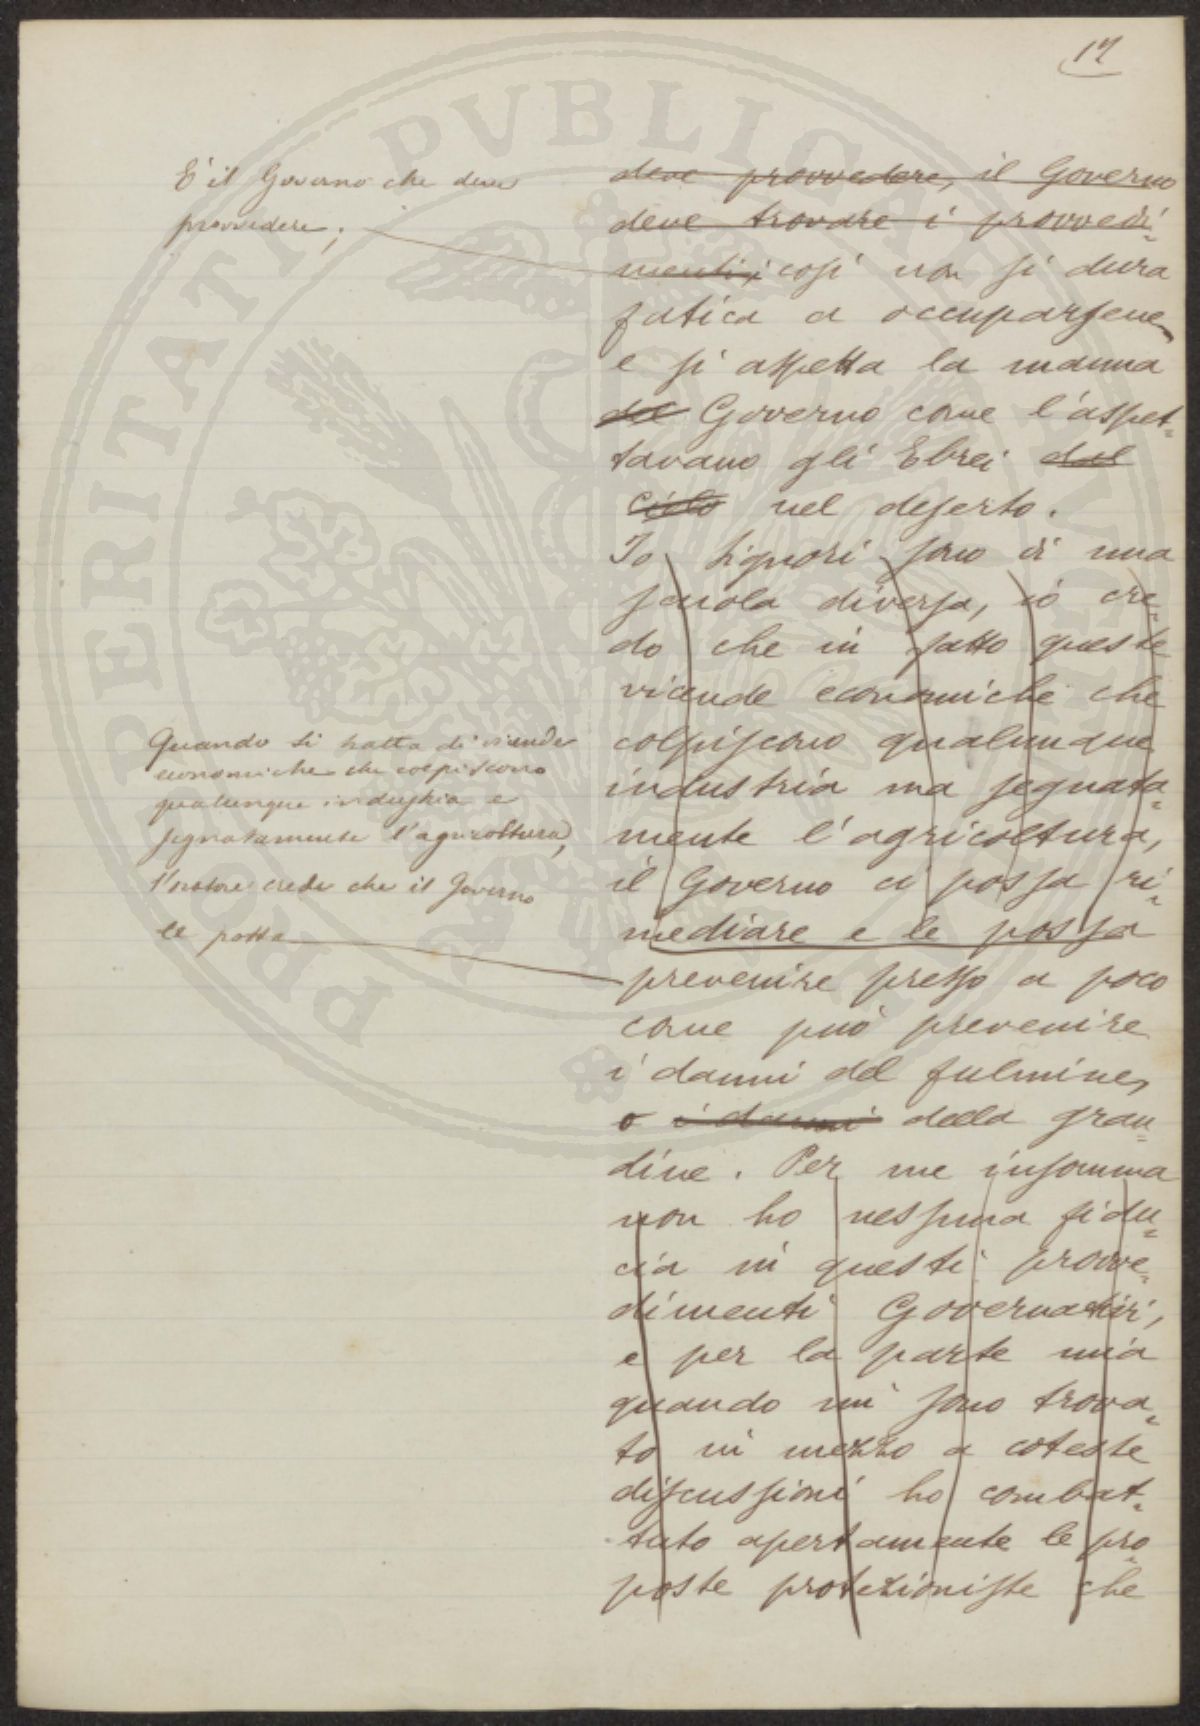 17
È il Governo che deve
provvedere;
deve provvedere, il Governo
deve trovare i provvedi=
menti; così non si dura
fatica a occuparsene
e si aspetta la manna
del Governo come l'aspet=
tavano gli Ebrei dal
cielo nel deserto.
Io Signori sono di una
scuola diversa, io cre=
do che in fatto queste
vicende economiche che
colpiscono qualunque
industria ma segnata=
mente l'agricoltura,
il Governo ci possa ri=
mediare e le possa
Quando si tratta di vicende
economiche che colpiscono
qualunque industria e
segnatamente l'agricoltura,
l'oratore crede che il Governo
le possa
prevenire presso a poco
come può prevenire
i danni del fulmine,
o i danni della gran=
dine. Per me insomma
non ho nessuna fidu=
cia in questi provve=
dimenti Governativi,
e per la parte mia
quando mi sono trova=
to in mezzo a coteste
discussioni ho combat=
tuto apertamente le pro=
poste protezioniste che
PERITATI PVBLICAE